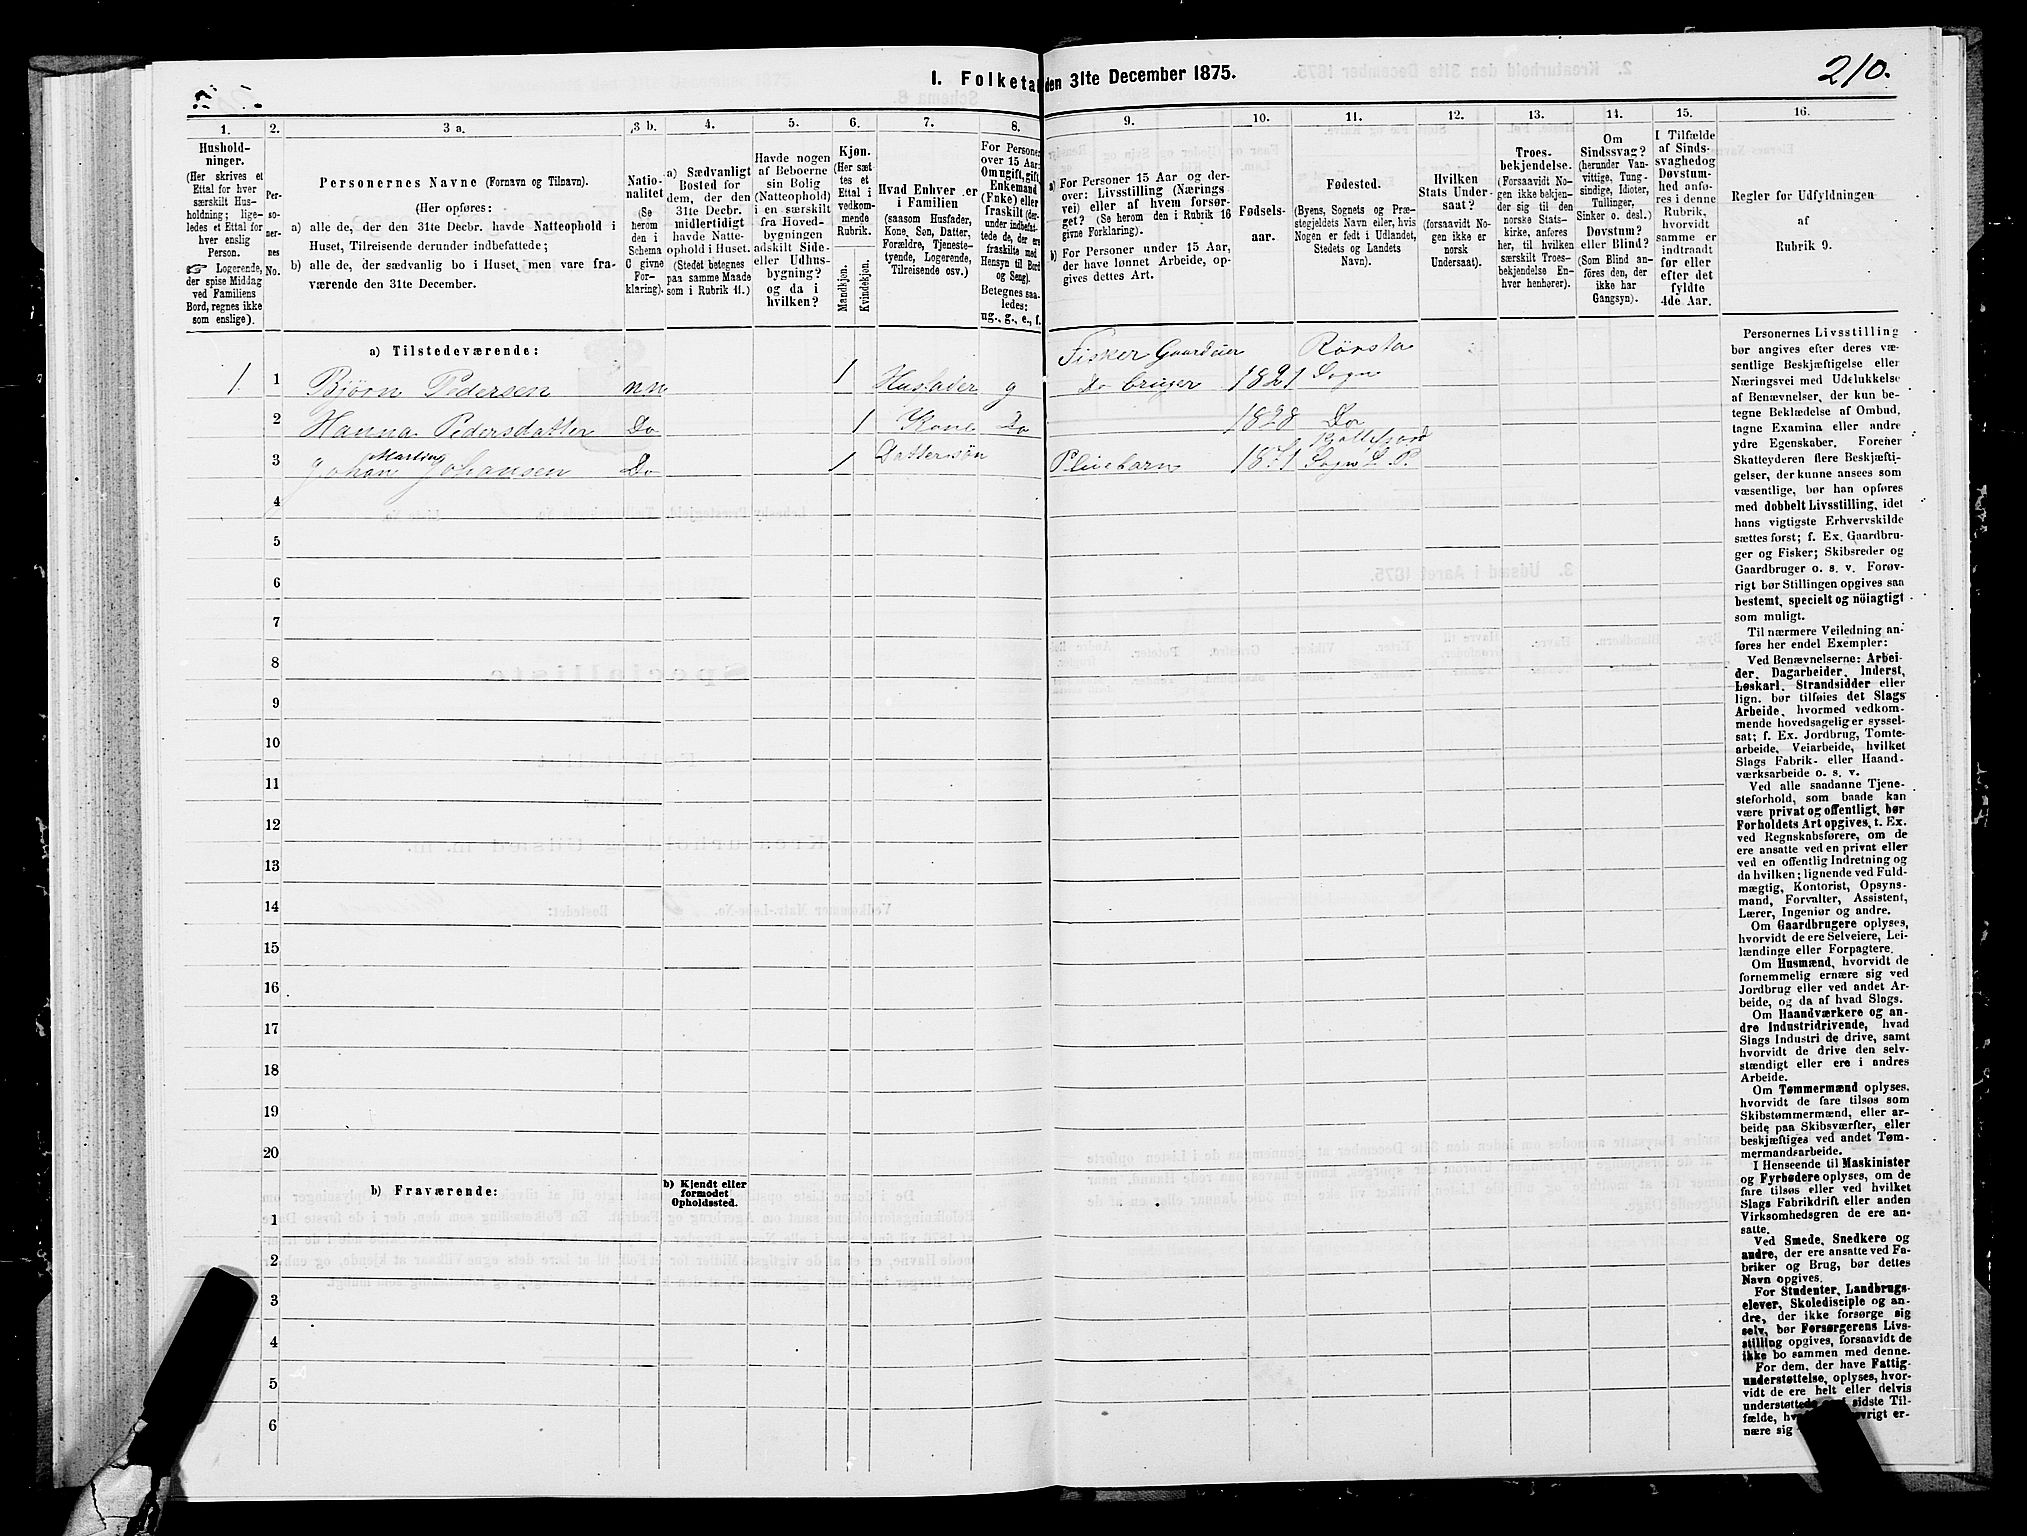 I. Folketal den 31te December 1875.
210.
1.
2.
3 a.
3 b.
4.
5.
6.
7.
8.
9.
10.
11.
12.
13.
14.
15.
16.
Hushold-
ninger.
(Her skrives et
Ettal for hver
særskilt Hus-
holdning; lige-
ledes et Ettal for
hver enslig
Person.
☞ Logerende,
der spise Middag
ved Familiens
Bord, regnes ikke
som enslige).
Per-
so-
ner-
nes
No.
Personernes Navne (Fornavn og Tilnavn).
(Her opføres:
a) alle de, der den 31te Decbr. havde Natteophold i
Huset, Tilreisende derunder indbefattede;
b) alle de, der sædvanlig bo i Huset, men vare fra-
værende den 31te December.
Natio-
nalitet
(Se
herom
den i
Schema
C givne
For-
klaring).
a) Sædvanligt
Bosted for
dem, der den
31te Decbr.
midlertidigt
havde Natte-
ophold i Huset.
(Stedet betegnes
paa samme Maade
som i Rubrik 11.)
Havde nogen
af Beboerne
sin Bolig
(Natteophold)
i en særskilt
fra Hoved-
bygningen
adskilt Side-
eller Udhus-
bygning?
og da i
hvilken?
Kjøn.
(Her sæt-
tes et
Ettal i
vedkom-
mende
Rubrik.
Mandkjøn.
Kvindekjøn.
Hvad Enhver er
i Familien
(saasom Husfader,
Kone, Søn, Datter,
Forældre, Tjeneste-
tyende, Logerende,
Tilreisende osv.)
For Personer
over 15 Aar:
Om ugift, gift,
Enkemand
(Enke) eller
fraskilt (der-
under indbefat-
tede de, der ere
fraskilte med
Hensyn til Bord
og Seng).
Betegnes saa-
ledes:
ug., g., e., f.
a) For Personer 15 Aar og der-
over: Livsstilling (Nærings-
vei) eller af hvem forsør-
get? (Se herom den i Rubrik 16
givne Forklaring).
b) For Personer under 15 Aar,
der have lønnet Arbeide, op-
gives dettes Art.
Fødsels-
aar.
Fødested.
(Byens, Sognets og Præ-
stegjeldets Navn eller, hvis
Nogen er født i Udlandet,
Stedets og Landets
Navn).
Hvilken
Stats Under-
saat?
(forsaavidt No-
gen ikke er
norsk
Undersaat).
Troes-
bekjendelse.
(Forsaavidt No-
gen ikke bekjen-
der sig til den
norske Stats-
kirke, anføres
her, til hvilken
særskilt Troes-
bekjendelse En-
hver henhører).
Om
Sindssvag?
(herunder Van-
vittige, Tung-
sindige, Idioter,
Tullinger,
Sinker o. desl.)
Døvstum?
eller Blind?
(Som Blind an-
føres den, der
ikke har
Gangsyn).
I Tilfælde
af Sinds-
svaghedog
Døvstum-
hed anfø-
res i denne
Rubrik,
hvorvidt
samme er
indtraadt
før eller
efter det
fyldte
4de Aar.
Regler for Udfyldningen
af
Rubrik 9.
a) Tilstedeværende:
1 1 Biørn Pedersen nn 1 Husfader g Fisker Gaardeier Do bruger 1821 Sogn
2 Hanna Pedersdatter Do 1 Kone Do 1828 Do
3 Johan Martin Johansen Do 1 Dattersøn Pleiebarn 1871 Sogn L. P.
4
5
6
7
8
9
10
11
12
13
14
15
16
17
18
19
20
b) Fraværende:
b) Kjendt eller
formodet
Opholdssted.
1
2
3
4
5
6
Personernes Livsstilling
bør angives efter deres væ-
sentlige Beskjæftigelse eller
Næringsvei med Udelukkelse
af Benævnelser, der kun be-
tegne Beklædelse af Ombud,
tagne Examina eller andre
ydre Egenskaber. Forener
Skatteyderen flere Beskjæfti-
gelser, der kunne ansees som
væsentlige, bør han opføres
med dobbelt Livsstilling, idet
hans vigtigste Erhvervskilde
sættes først; f. Ex. Gaardbru-
ger og Fisker; Skibsreder og
Gaardbruger o. s. v. Forøv-
rigt bør Stillingen opgives saa
bestemt, specielt og nöiagtigt
som muligt.
Til nærmere Veiledning an-
føres her endel Exempler:
Ved Benævnelserne: Arbei-
der, Dagarbeider, Inderst,
Løskarl, Strandsidder eller
lign. bør tilføies det Slags
Arbeide, hvormed vedkom-
mende hovedsagelig er syssel-
sat; f. Ex. Jordbrug, Tomte-
arbeide, Veiarbeide, hvilket
Slags Fabrik- eller Haand-
værksarbeide o. s. v.
Ved alle saadanne Tjene-
steforhold, som baade kan
være privat og offentligt, bør
Forholdets Art opgives, t. Ex.
ved Regnskabsførere, om de
ere ansatte ved en privat eller
ved en offentlig Indretning og
da hvilken; lignende ved Fuld-
mægtig, Kontorist, Opsyns-
mand, Forvalter, Assistent,
Lærer, Ingeniør og andre.
Om Gaardbrugere oplyses,
hvorvidt de ere Selveiere, Lei-
lændinge eller Forpagtere.
Om Husmænd, hvorvidt de
fornemmelig ernære sig ved
Jordbrug eller ved andet Ar-
beide, og da af hvad Slags.
Om Haandværkere og an-
dre Industridrivende, hvad
Slags Industri de drive, samt
hvorvidt de drive den selv-
stændigt eller ere i andres
Arbeide.
Om Tømmermænd oplyses,
hvorvidt de fare tilsøs som
Skibstømmermænd, eller ar-
beide paa Skibsværfter, eller
beskjæftiges ved andet Tøm-
mermandsarbeide.
I Henseende til Maskinister
og Fyrbødere oplyses, om de
fare tilsøs eller ved hvilket
Slags Fabrikdrift eller anden
Virksomhedsgren de ere an-
satte.
Ved Smede, Snedkere og
andre, der ere ansatte ved Fa-
briker og Brug, bør dettes
Navn opgives.
For Studenter, Landbrugs-
elever, Skoledisciple og an-
dre, der ikke forsørge sig
selv, bør Forsørgerens Livs-
stilling opgives, forsaavidt de
ikke bo sammen med denne.
For dem, der have Fattig-
understøttelse, oplyses, hvor-
vidt de ere helt eller delvis
sidste Til-
fælde,
nære sig